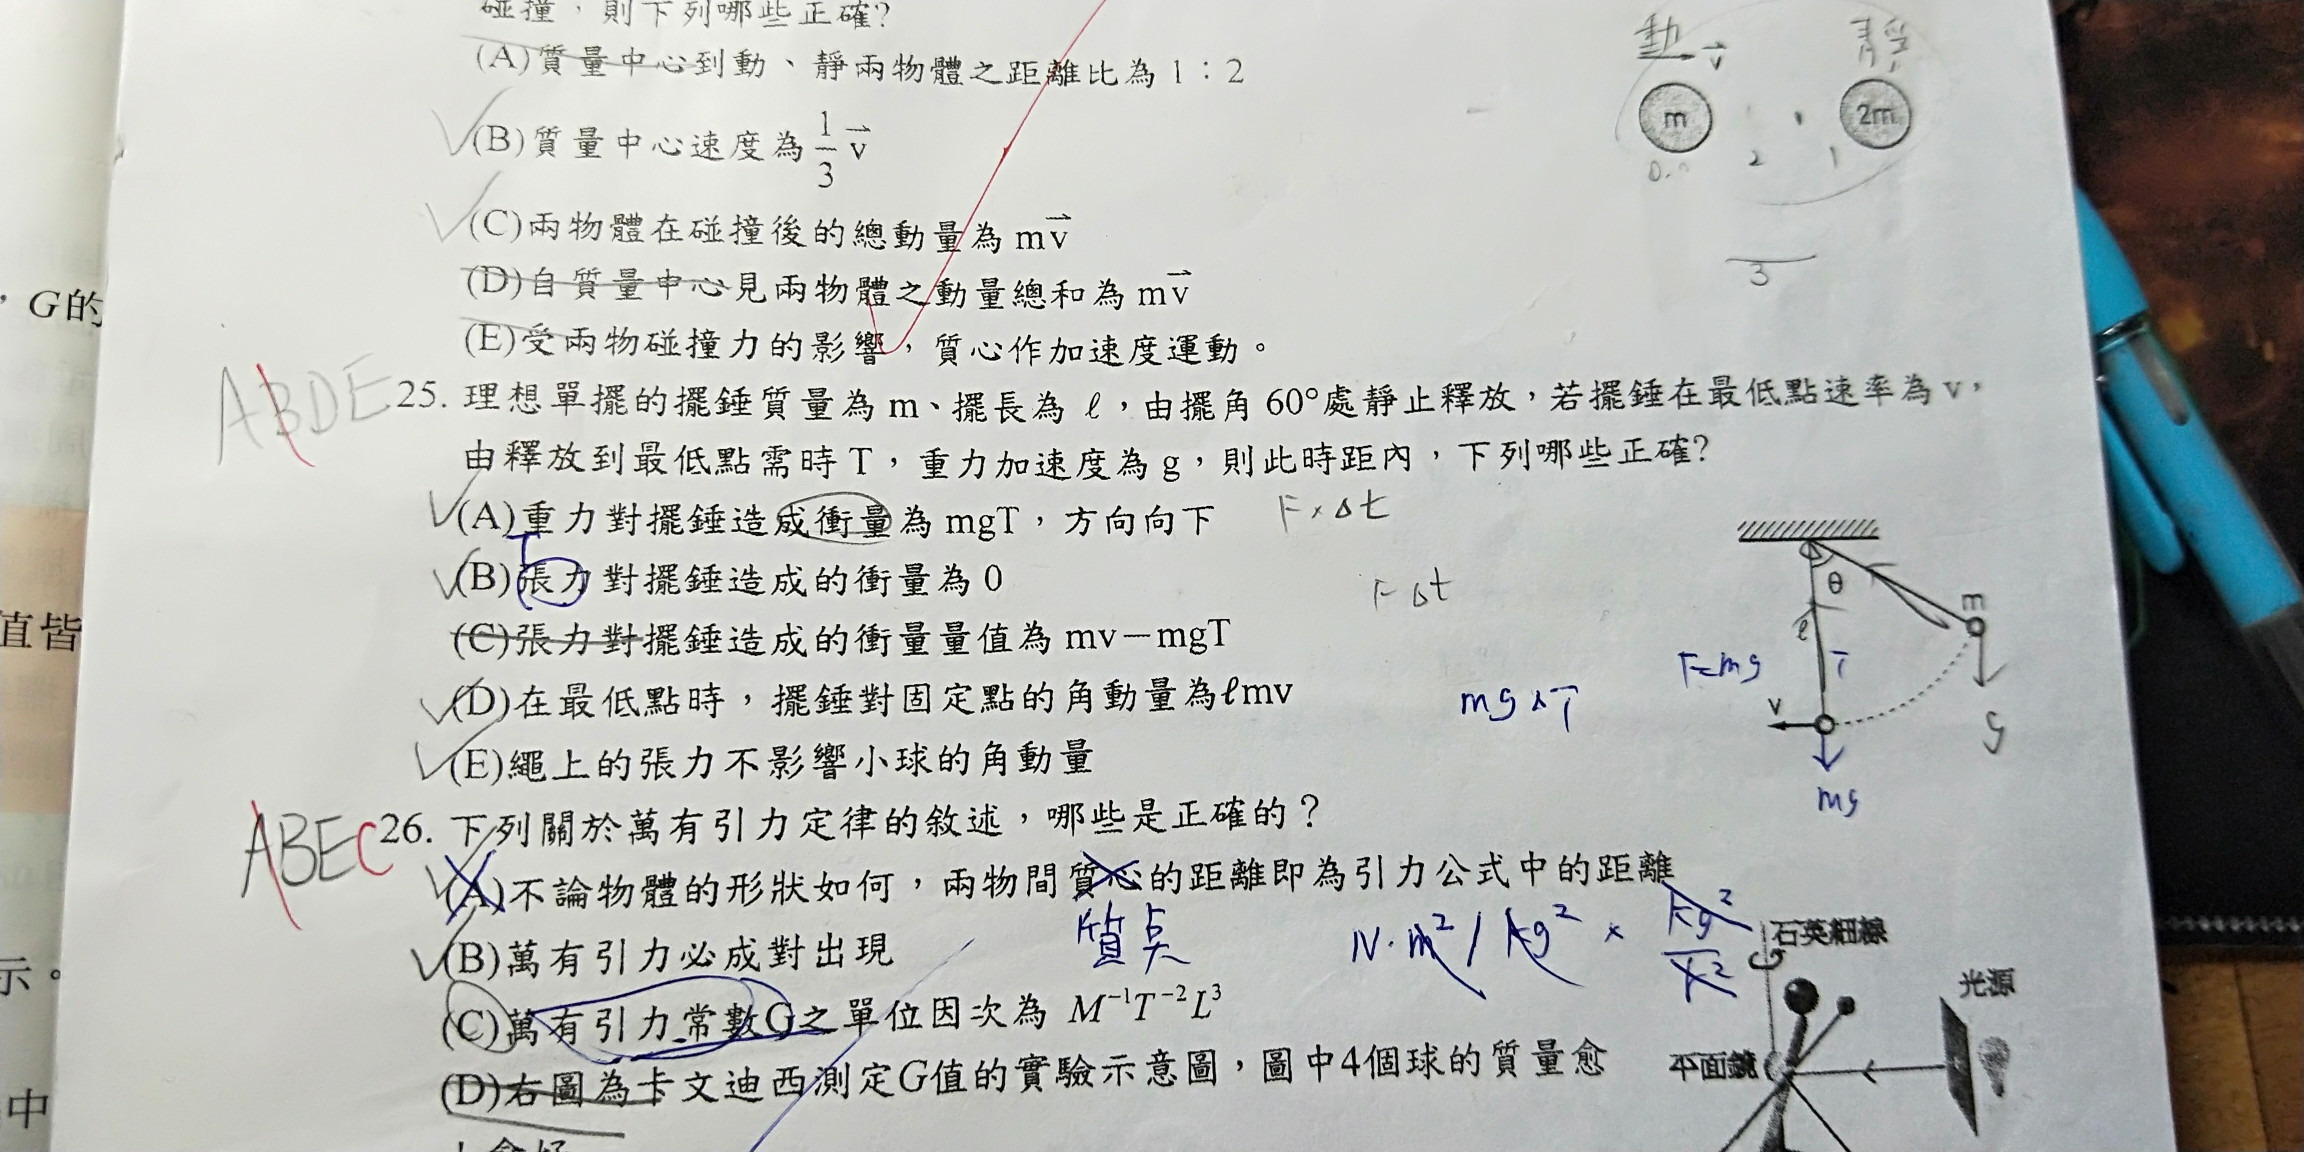 碰撞，則下列哪些正確？
(A)質量中心到動、靜兩物體之距離比為1：2
(B)質量中心速度為 1/3 v⃗
(C)兩物體在碰撞後的總動量為 mv⃗
(D)自質量中心見兩物體之動量總和為 mv⃗
(E)受兩物碰撞力的影響，質心作加速度運動。
動 v⃗ 靜
m 2m
2 1
3
，G的
值皆
示。
中
ABDE
25. 理想單擺的擺錘質量為 m、擺長為 ℓ，由擺角 60°處靜止釋放，若擺錘在最低點速率為 v，
由釋放到最低點需時 T，重力加速度為 g，則此時距內，下列哪些正確？
(A)重力對擺錘造成衝量為 mgT，方向向下 F×Δt
T
(B)張力對擺錘造成的衝量為 0 FΔt
(C)張力對擺錘造成的衝量量值為 mv－mgT
(D)在最低點時，擺錘對固定點的角動量為ℓmv mg×T
(E)繩上的張力不影響小球的角動量
θ m
ℓ
F=mg T
v g
mg
ABEC
26. 下列關於萬有引力定律的敘述，哪些是正確的？
(A)不論物體的形狀如何，兩物間質心的距離即為引力公式中的距離
質点 N·m²/kg² × kg²/r²
(B)萬有引力必成對出現
(C)萬有引力常數G之單位因次為 M⁻¹T⁻²L³
(D)右圖為卡文迪西測定G值的實驗示意圖，圖中4個球的質量愈
石英細線
光源
平面鏡